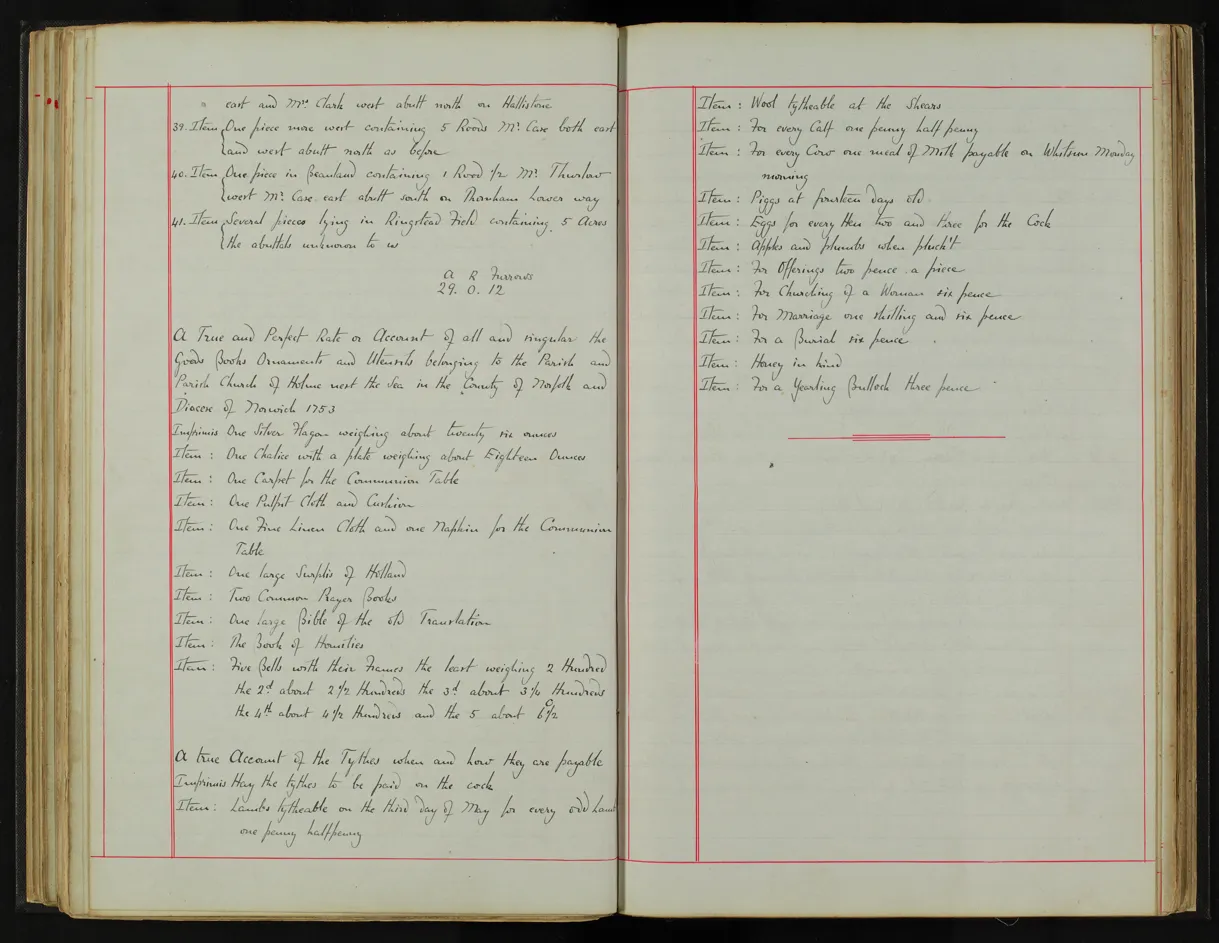 east and Mrs. Clark west abutt north on Hallistone
39. Item One piece more west containing 5 Roods Mr. Case both east
and west abutt north as before
40. Item One piece in Beauland containing 1 Rood 1/2 Mr. Thurlow
west Mr. Case east abutt south on Thornham Lower way
41. Item Several pieces lying in Ringstead Field containing 5 Acres
the abuttals unknown to us
A R Furrows
29. 0. 12
A True and Perfect Rate or Account of all and singular the
Goods Books Ornaments and Utensils belonging to the Parish and
Parish Church of Holme next the Sea in the County of Norfolk and
Diocese of Norwich 1753
Imprimis One Silver Flagon weighing about twenty six ounces
Item : One Chalice with a plate weighing about Eighteen Ounces
Item : One Carpet for the Communion Table
Item : One Pulpit Cloth and Cushion
Item : One Fine Linen Cloth and one Napkin for the Communion
Table
Item : One large Surplis of Holland
Item : Two Common Prayer Books
Item : One large Bible of the old Translation
Item : The Book of Homilies
Item : Five Bells with their Frames the least weighing 2 Hundred
the 2d about 2 1/2 Hundreds the 3d about 3 1/4 Hundreds
the 4th about 4 1/2 Hundreds and the 5 about 6 1/2
A true Account of the Tythes when and how they are payable
Imprimis Hay the tythes to be paid on the cock
Item : Lambs tytheable on the third day of May for every odd Lamb
one penny halfpenny
Item : Wool tytheable at the Shears
Item : For every Calf one penny half penny
Item : For every Cow one meal of Milk payable on Whitsun Monday
morning
Item : Piggs at fourteen days old
Item : Eggs for every Hen two and three for the Cock
Item : Apples and plumbs when pluck't
Item : For Offerings two pence a piece
Item : For Churching of a Woman six pence
Item : For Marriage one shilling and six pence
Item : For a Burial six pence
Item : Honey in kind
Item : For a Yearling Bullock three pence